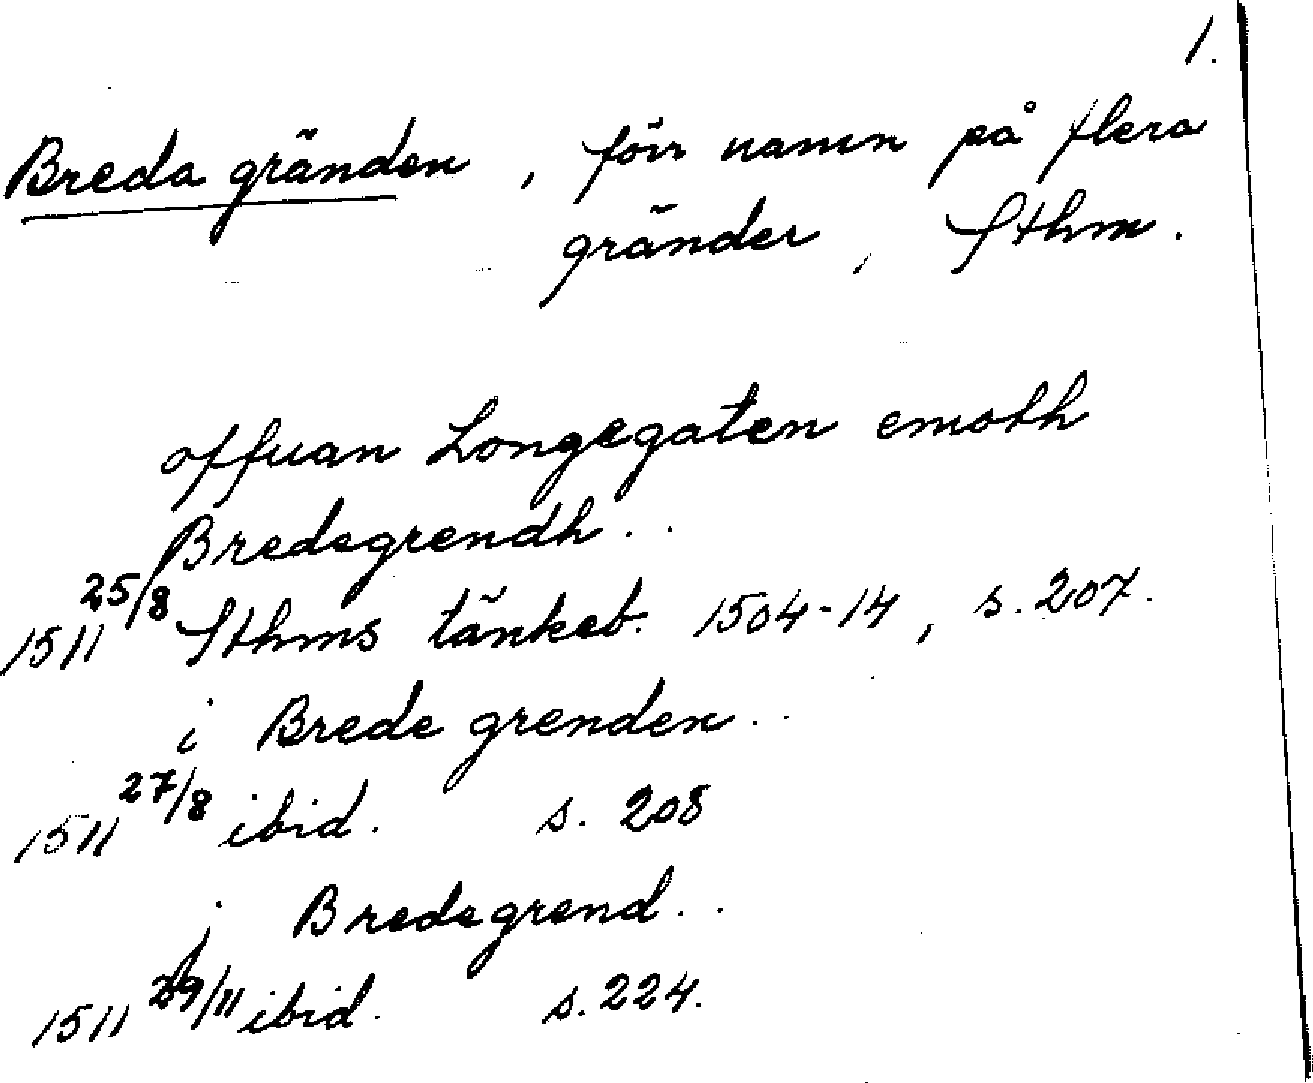 1.
Breda gränden, förr namn på flera
gränder, Sthm.
offuan Longegaten emoth
Bredegrendh..
1511 25/8 Sthms tänkeb. 1504-14, s. 207.
i Brede grenden..
1511 27/8 ibid. s. 208
j Bredegrend..
1511 29/11 ibid. s. 224.